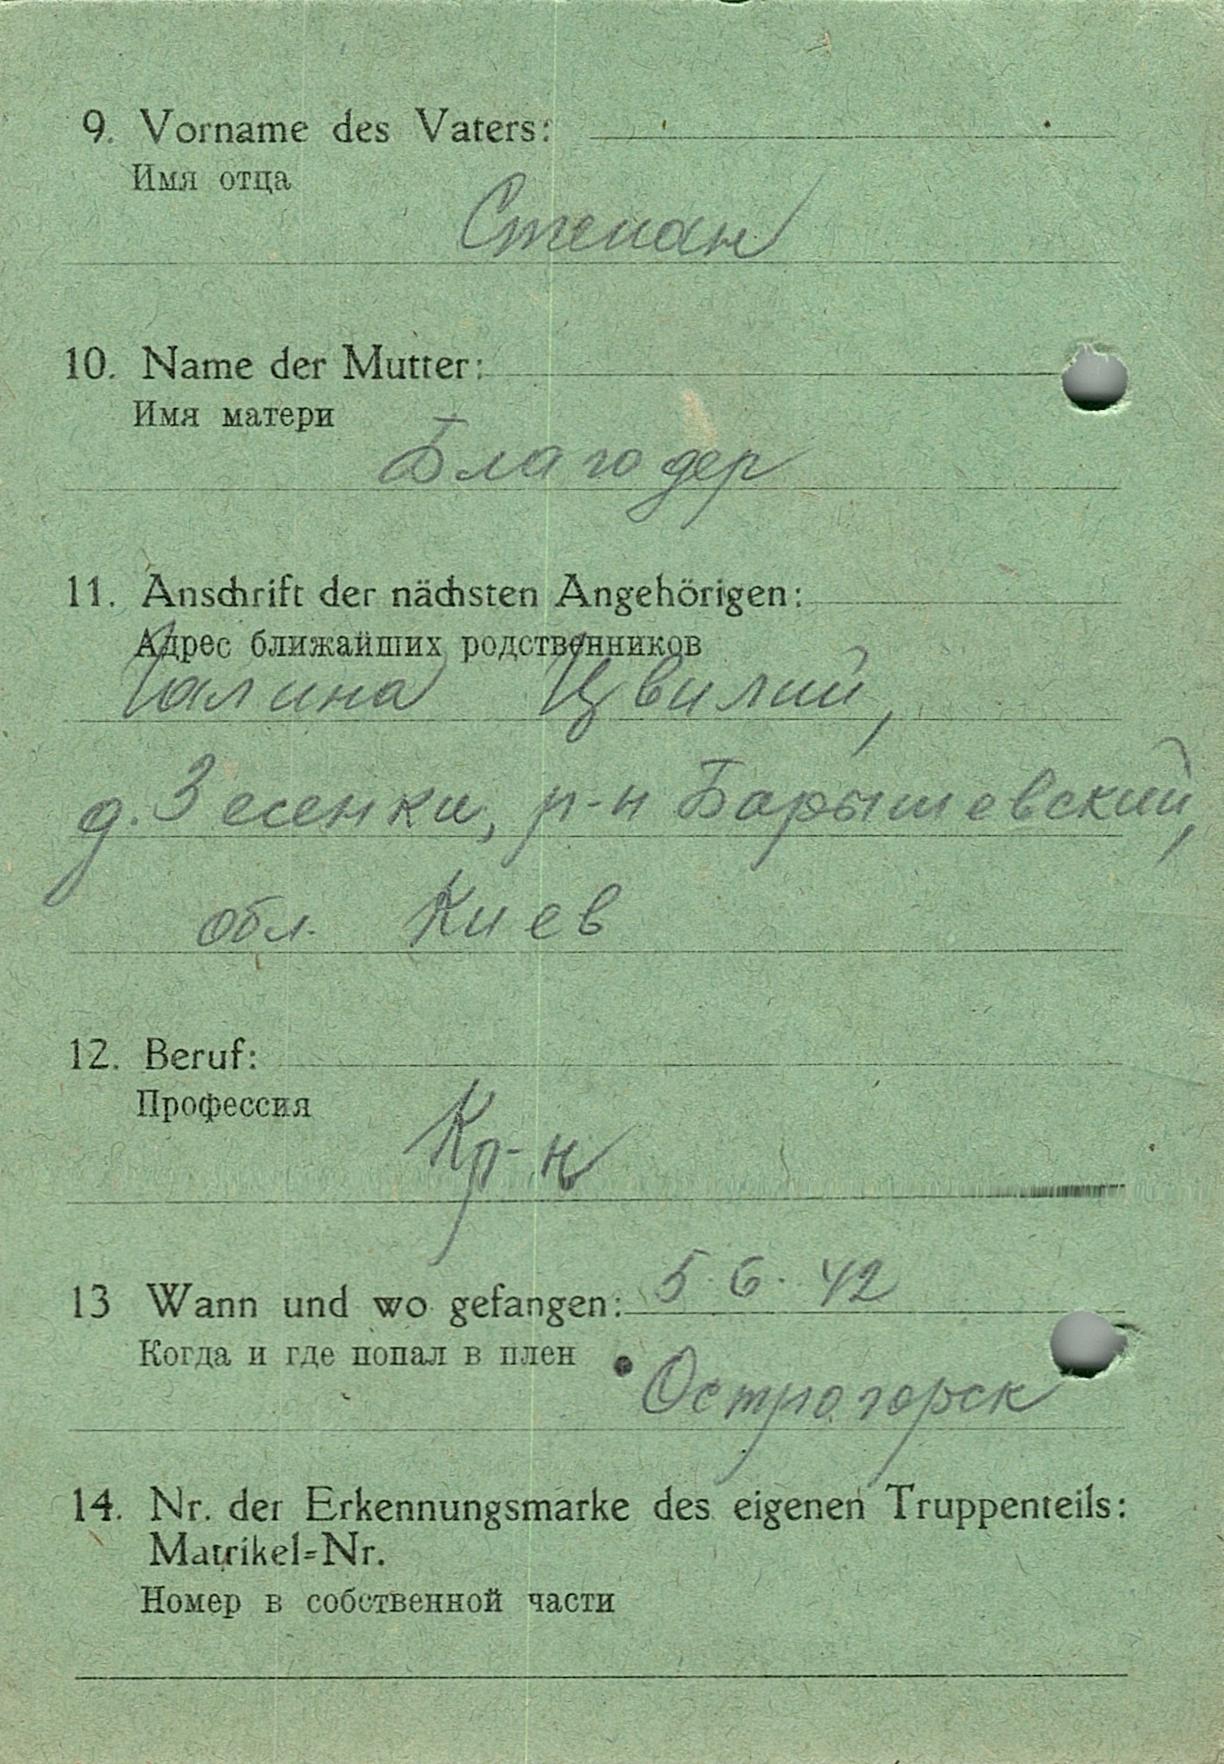 9. Vorname des Vaters:
Имя отца
Степан
10. Name der Mutter:
Имя матери
Благодер
11. Anschrift der nächsten Angehörigen:
Адрес ближайших родственников
Галина Цвилий,
д. Зесенки, р-н Барышевский,
обл. Киев
12. Beruf:
Профессия
Кр-н
13 Wann und wo gefangen: 5.6.42
Когда и где попал в плен
Острогорск
14. Nr. der Erkennungsmarke des eigenen Truppenteils:
Matrikel=Nr.
Номер в собственной части